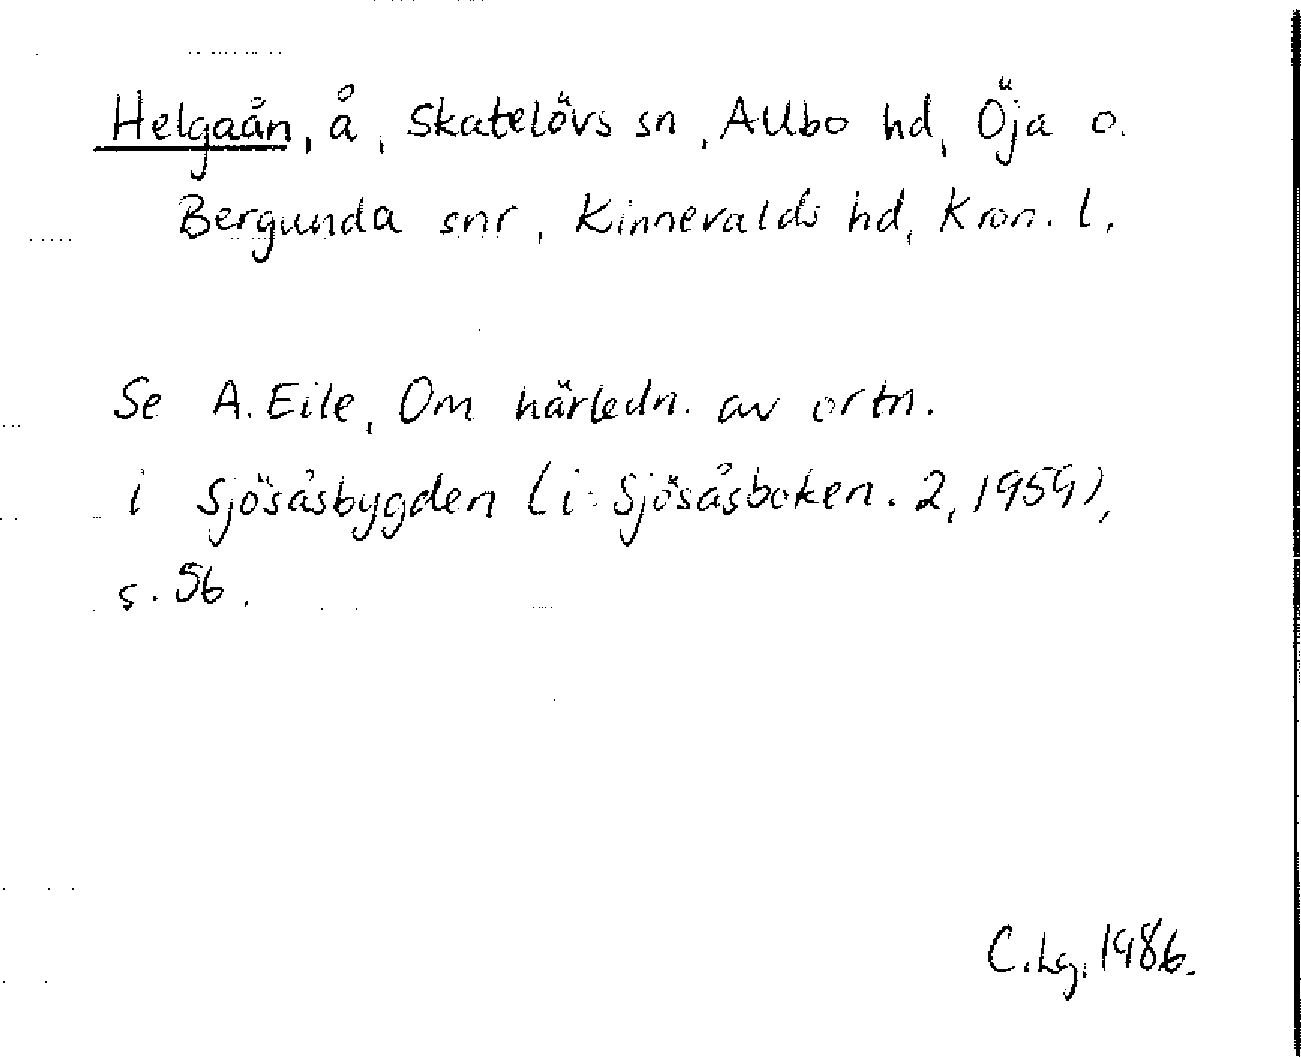 Helgaån, å, Skatelövs sn, Allbo hd, Öja o.
Bergunda snr, Kinnevalds hd, Kron. l.
Se A. Eile, Om härledn. av ortn.
i Sjösåsbygden (i: Sjösåsboken. 2, 1959),
s. 56.
C. Lg. 1986.